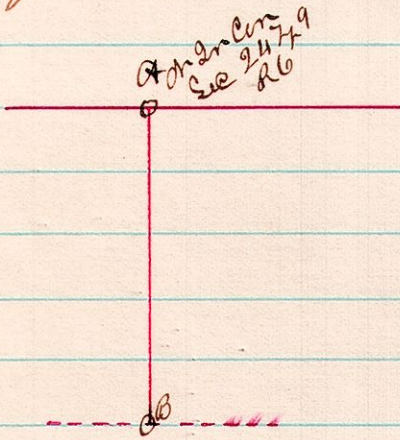 A or Qr Cor
Sec 24 T 49
R6
B